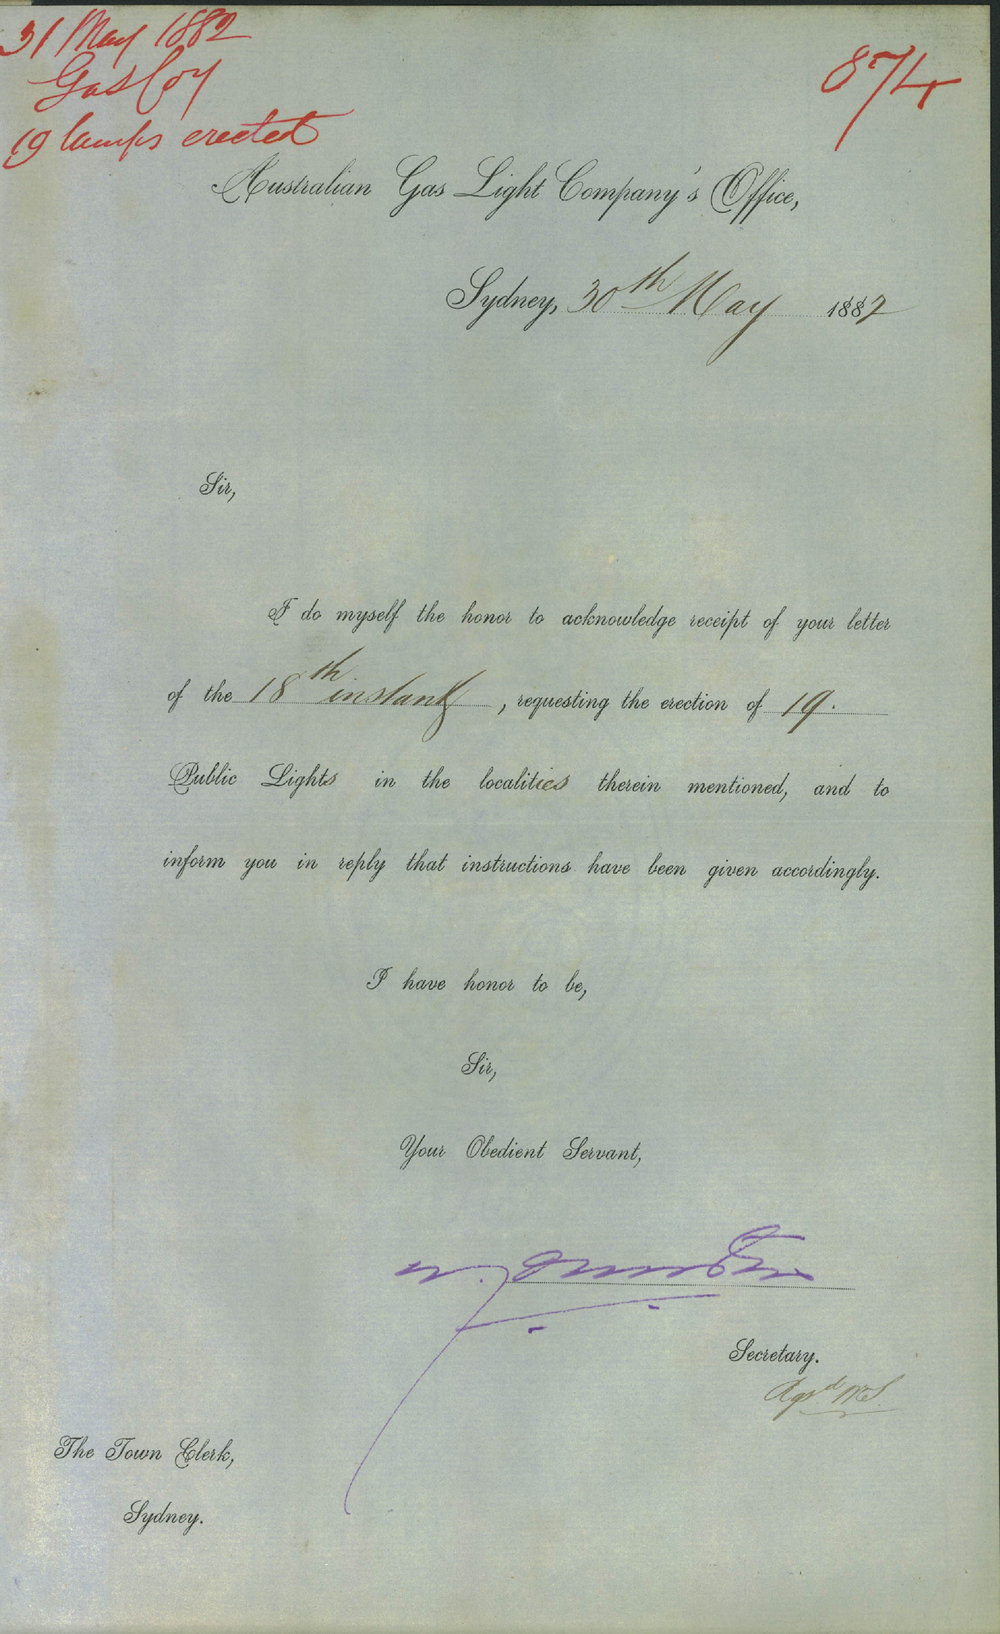 31 May 1882
Gas Coy
19 lamps erected
874
Australian Gas Light Company's Office,
Sydney, 30th May 1882
Sir,
I do myself the honor to acknowledge receipt of your letter
of the 18th instant, requesting the erection of 19.
Public Lights in the localities therein mentioned, and to
inform you in reply that instructions have been given accordingly.
I have honor to be,
Sir,
Your Obedient Servant,
Secretary.
The Town Clerk,
Sydney.